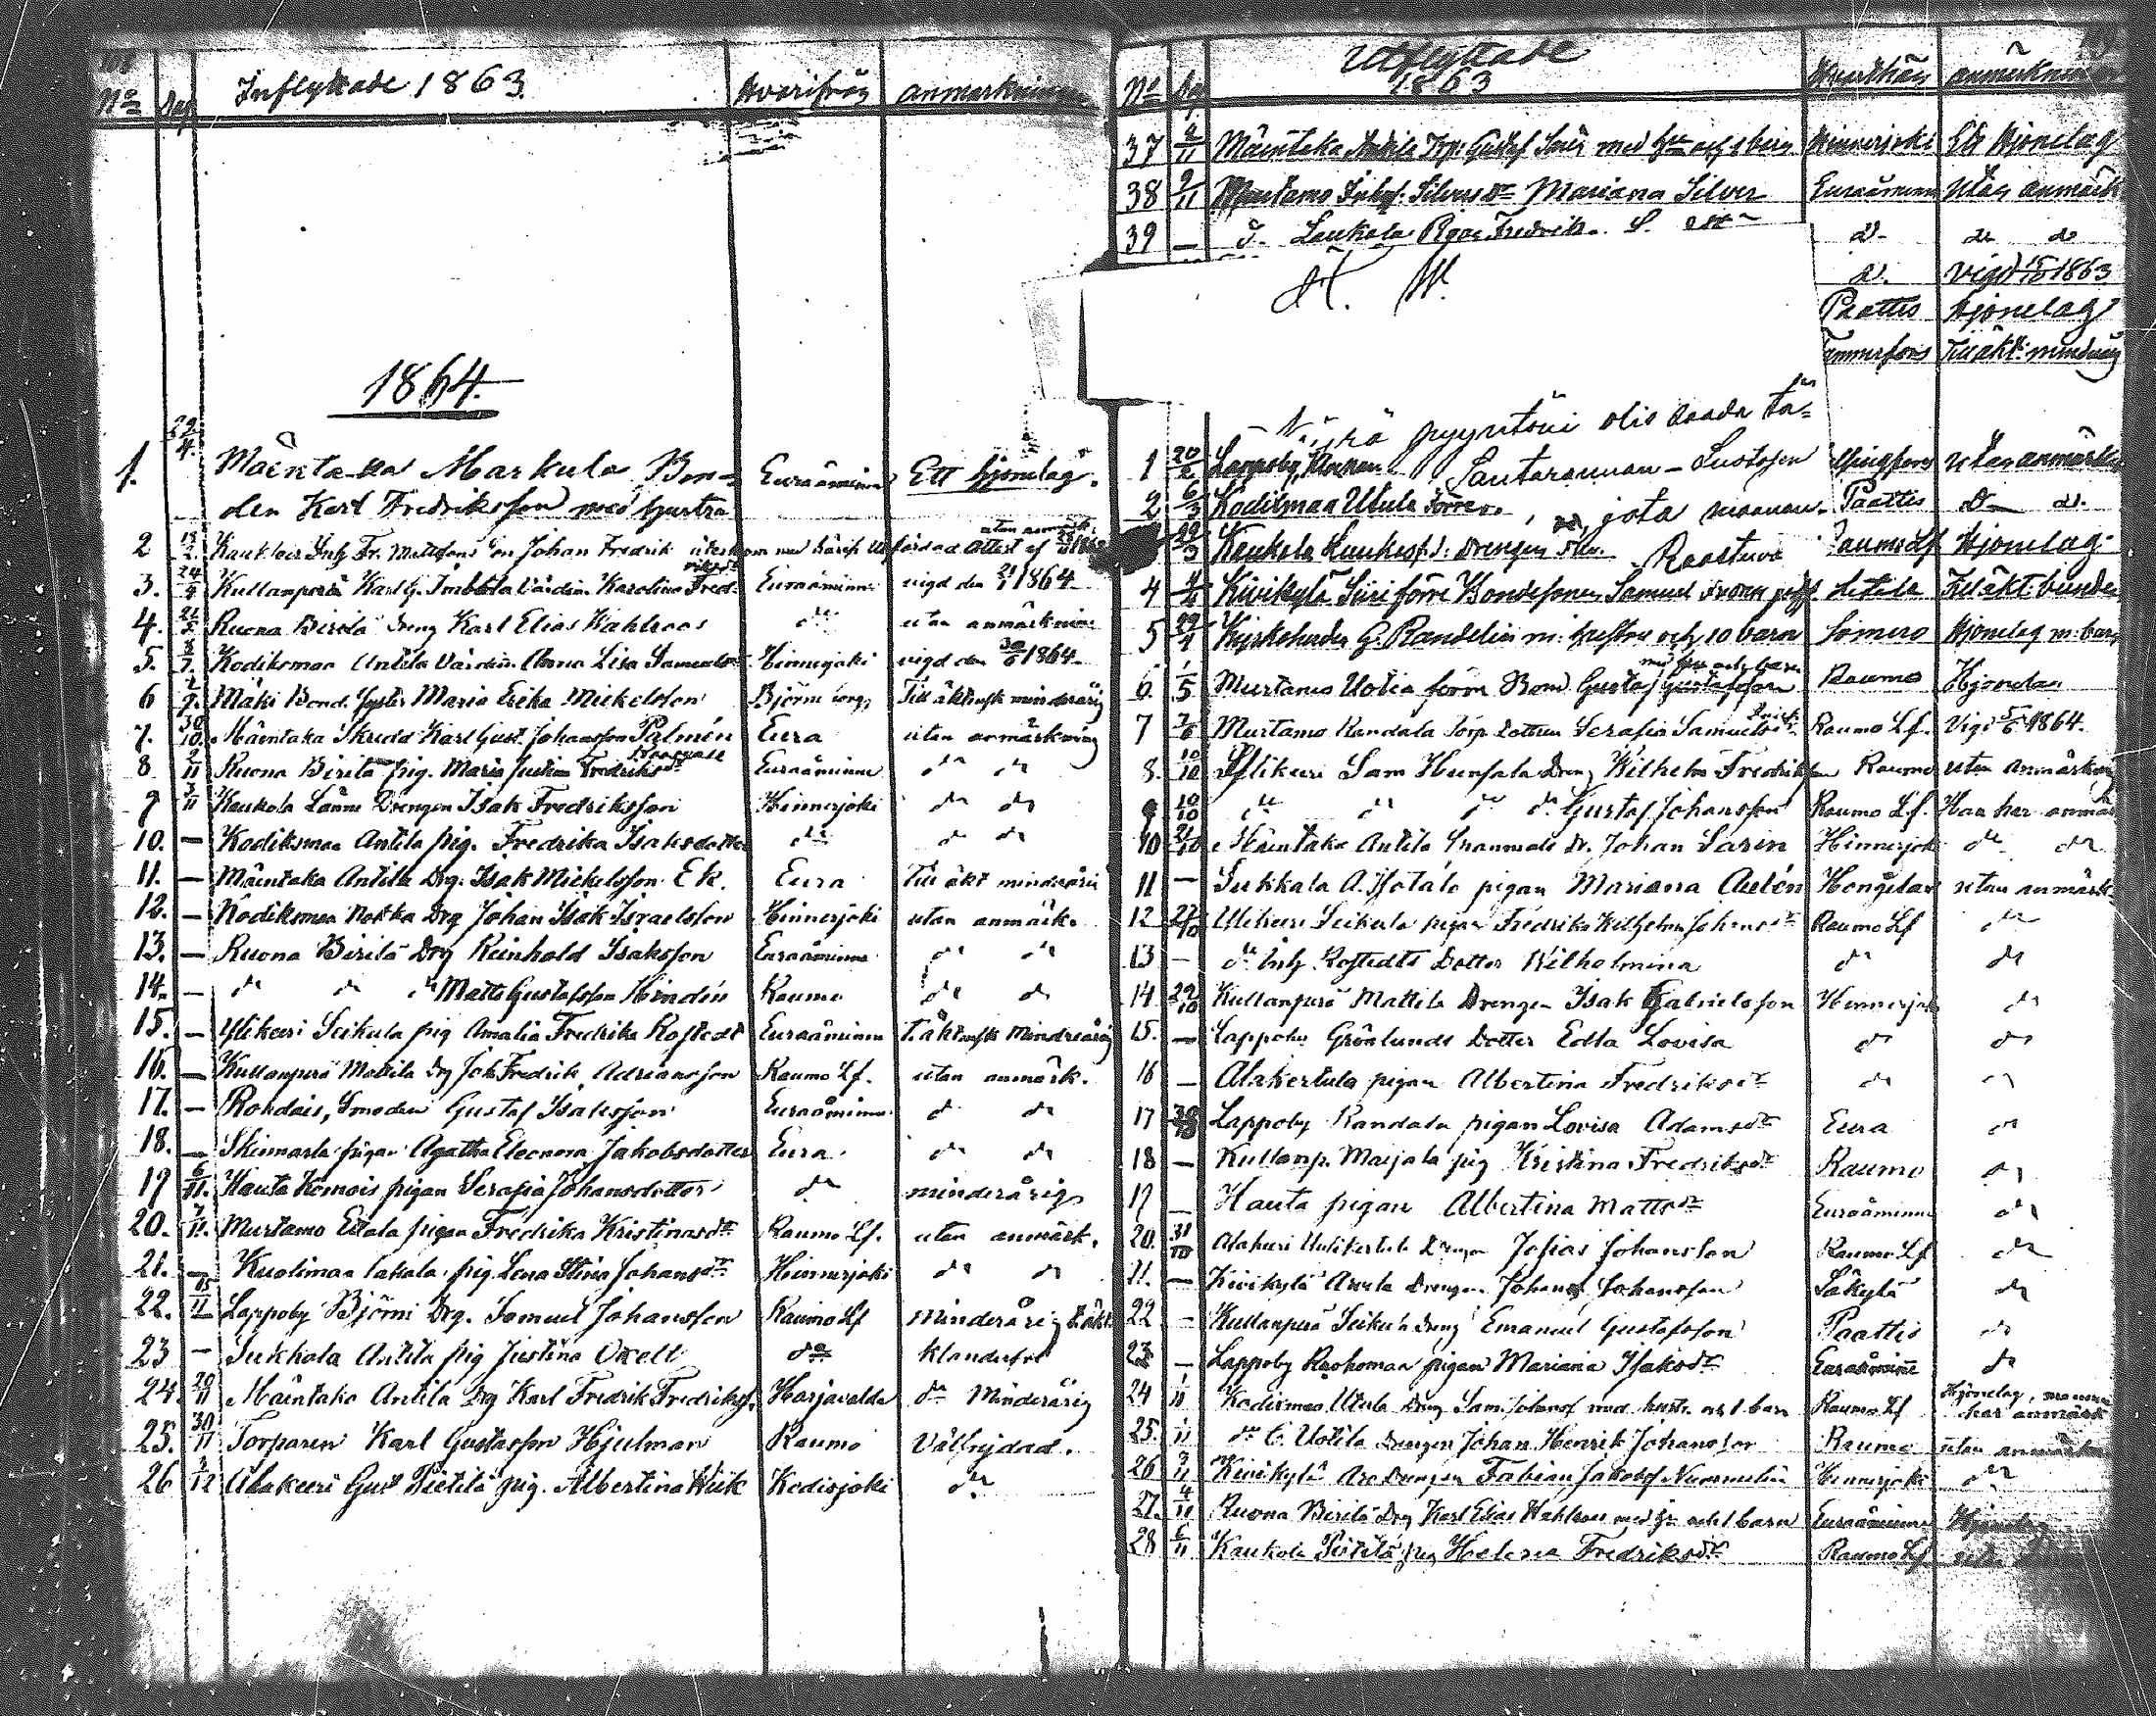 No Dag Inflyttade 1863 Hvarifrån anmärkningar
1864.
1. 22/4. Mäntaka Markula Bon- Euraåminne Ett hjonelag.
den Karl Fredriksson med hustru
2 Johan Fredrik
3. 24/4 Kullanperä Karl G. Karolina Fred- Euraåminne vigd den 1864
4. Ruona Birilä Dreng Karl Elias Wahlroos do utan anmärkning
5. Kodiksmaa Antila Värdin. Anna Lisa Hinnerjoki vigd den 30/6 1864
6 Mäki Bond. syster Maria Erika Mickelsson Till äktensk minderårig
7. 30/10 Mäntaka Skredd Karl Gust. Johansson Palmén Eura utan anmärkning
8 2/11 Ruona Birilä pig. Maria Justina Fredriksdr Euraåminne do do
9 3/11 Kaukola Länne Drengen Isak Fredriksson Hinnerjoki do do
10. — Kodiksmaa Antila pig. Fredrika Isaksdotter do do do
11. — Mäntaka Antila Drg. Isak Mickelsson Ek. Eura Till äkt minderårig
12. — Kodiksmaa Drg Johan Isak Israelsson Hinnerjoki utan anmärk.
13. — Ruona Birilä Drg Reinhold Isaksson Euraåminne do do
14. — do do do Matts Gustafsson Lindén Raumo do do
15. — Ylikeri Seikula pig Amalia Fredrika Rostedt Euraåminne t. äktensk Minderårig
16. — Kullanperä Mattila Drg Joh Fredrik Adriansson Raumo Lf. utan anmärk.
17. — Rohdais, Smeden Gustaf Isaksson Euraåminne do do
18. — Skinnarla pigan Agatha Eleonora Jakobsdotter Eura do do
19 6/11. Hauta Komois pigan Serafia Johansdotter do minderårig
20. 7/11. Murtamo Eitala pigan Fredrika Kristinasdr Raumo Lf. utan anmärk.
21. — Kuolimaa pig. Lena Stina Johansdr Hinnerjoki do do
22. 15/11 Lappoby Björni Drg. Samuel Johansson Raumo Lf minderårig t. äkt
23 — Sukkala Antila pig Justina Oxell do klanderfri
24. 20/11 Mäntaka Antila Drg Karl Fredrik Fredrikss. Harjavalda do Minderårig
25. 30/11 Torparen Karl Gustafsson Hjulman Raumo Välfrejdad.
26 2/12 Alakeri Gust Pietilä pig. Albertina Wiik Kodisjoki do
No Dag Utflyttade 1863 Hvarthän anmärkningar
37 2/11 Mäntaka Antila Trp. Gustaf med hu och 1 barn Hinnerjoki Ett Hjonelag
38 9/11 Murtamo Inhys. Silvers dr Mariana Silver Euraåminne Utan anmärk
39 — J. Laukola Fredrik d. do do
d. vigd 1863
Paattis Hjonelag
Tammerfors Till äkt. minderårig
pyyntöni olis saada tä-
1 20/2 Lappoby Santarannan - Sustosen Helsingfors utan anmärkn
2 6/3 Kodiksmaa Utula jota Paattis do d.
Kaukola Drengen Raastuva Raumo Lf Hjonelag
4 Kivikylä förre Bondesonen Samuel Letala Till äkt bunden
5 22/4 Kyrkoherden G. Randelin m: hustru och 10 barn Somero Hjonelag m: barn
6. 1/5 Murtamo Uotila förre Bond. Gustaf Gustafsson med hu och barn Raumo Hjonelag
7 7/6 Murtamo Randala Torp. dottren Serafia Samuelsdr Raumo Lf. Vigd 5/6 1864.
8. 10/10 Ylikeri Sam Heinsala Dreng Wilhelm Fredriksson Raumo utan anmärkn
9 10/10 do do do do Gustaf Johansson Raumo Lf. Han har anmärk
10 21/10 Mäntaka Antila Grannmale dr. Johan Sarin Hinnerjoki do do
11 — Sukkala A. Isotalo pigan Mariana Autén Hongelax utan anmärk
12 27/10 Ylikeri Seikula pigan Fredrika Wilhelmina Johansdr Raumo Lf do
13 — do Inh. Rostedts Dotter Wilhelmina do do
14 29/10 Kullanperä Mattila Drengen Isak Gabrielsson Hinnerjoki do
15. — Lappoby Grönlunds Dotter Edla Lovisa do do
16 — Alakertula pigan Albertina Fredriksdr do do
17 30/10 Lappoby Randala pigan Lovisa Adamsdr Eura do
18 — Kullanp. Maijala pig Kristina Fredriksdr Raumo do
19 — Hauta pigan Albertina Mattsdr Euraåminne do
20. 31/10 Alakeri Ulikertula Drengen Josias Johansson Raumo Lf do
21. — Kivikylä Arvela Drengen Johans Johansson Säkylä do
22 — Kullanperä Seikula Dreng Emanuel Gustafsson Paattis do
23 — Lappoby Ruohomaa pigan Mariana Isaksdr Euraåminne do
24 1/11 Kodiksmaa Utula Dreng Sam. Johanss med hustr. och 1 barn Raumo Lf Hjonelag, mannen har anmärk
25. 1/11 do C. Uotila Drengen Johan Henrik Johansson Raumo utan anmärkn
26 3/11 Kivikylä Aro Drengen Fabian Jakobss Nummelin Hinnerjoki do
27. 4/11 Ruona Birilä Drg Karl Elias Wahlroos med hu och 1 barn Euraåminne Hjonelag
28 6/11 Kaukola Pietilä pig Helena Fredriksdr Raumo Lf